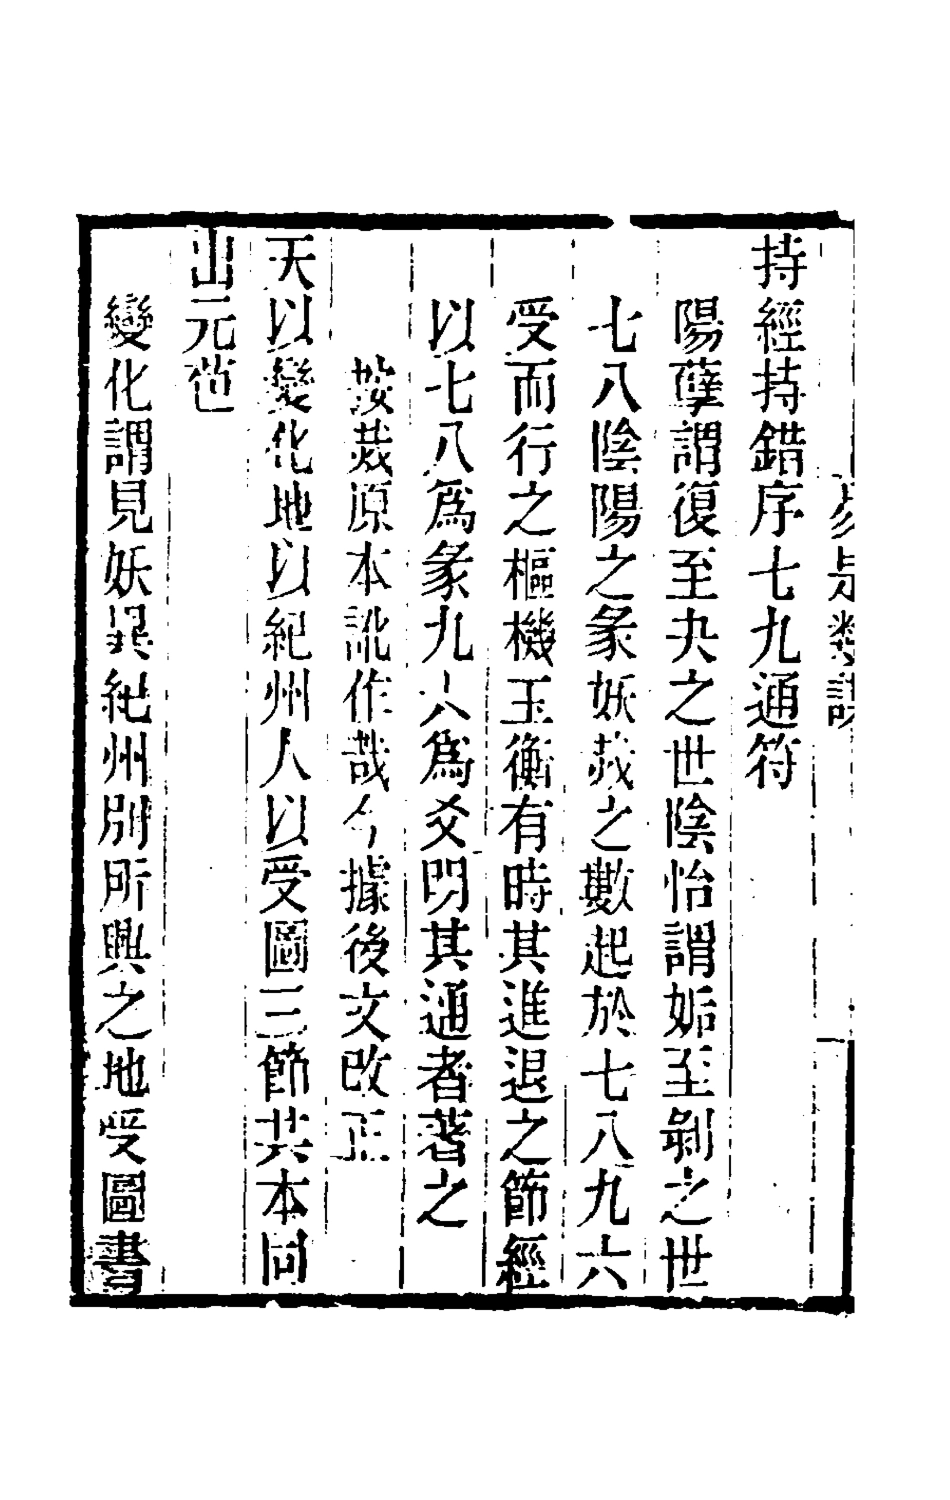 易是類謀
持經持錯序七九通符
陽孽謂復至夬之世陰怡謂姤至剝之世
七八陰陽之彖妖烖之數起於七八九六
受而行之樞機玉衡有時其進退之節經
以七八爲彖九六爲爻明其通者著之
按烖原本訛作哉今據後文改正
天以變化地以紀州人以受圖三節共本同
出元苞
變化謂見妖異紀州別所興之地受圖書